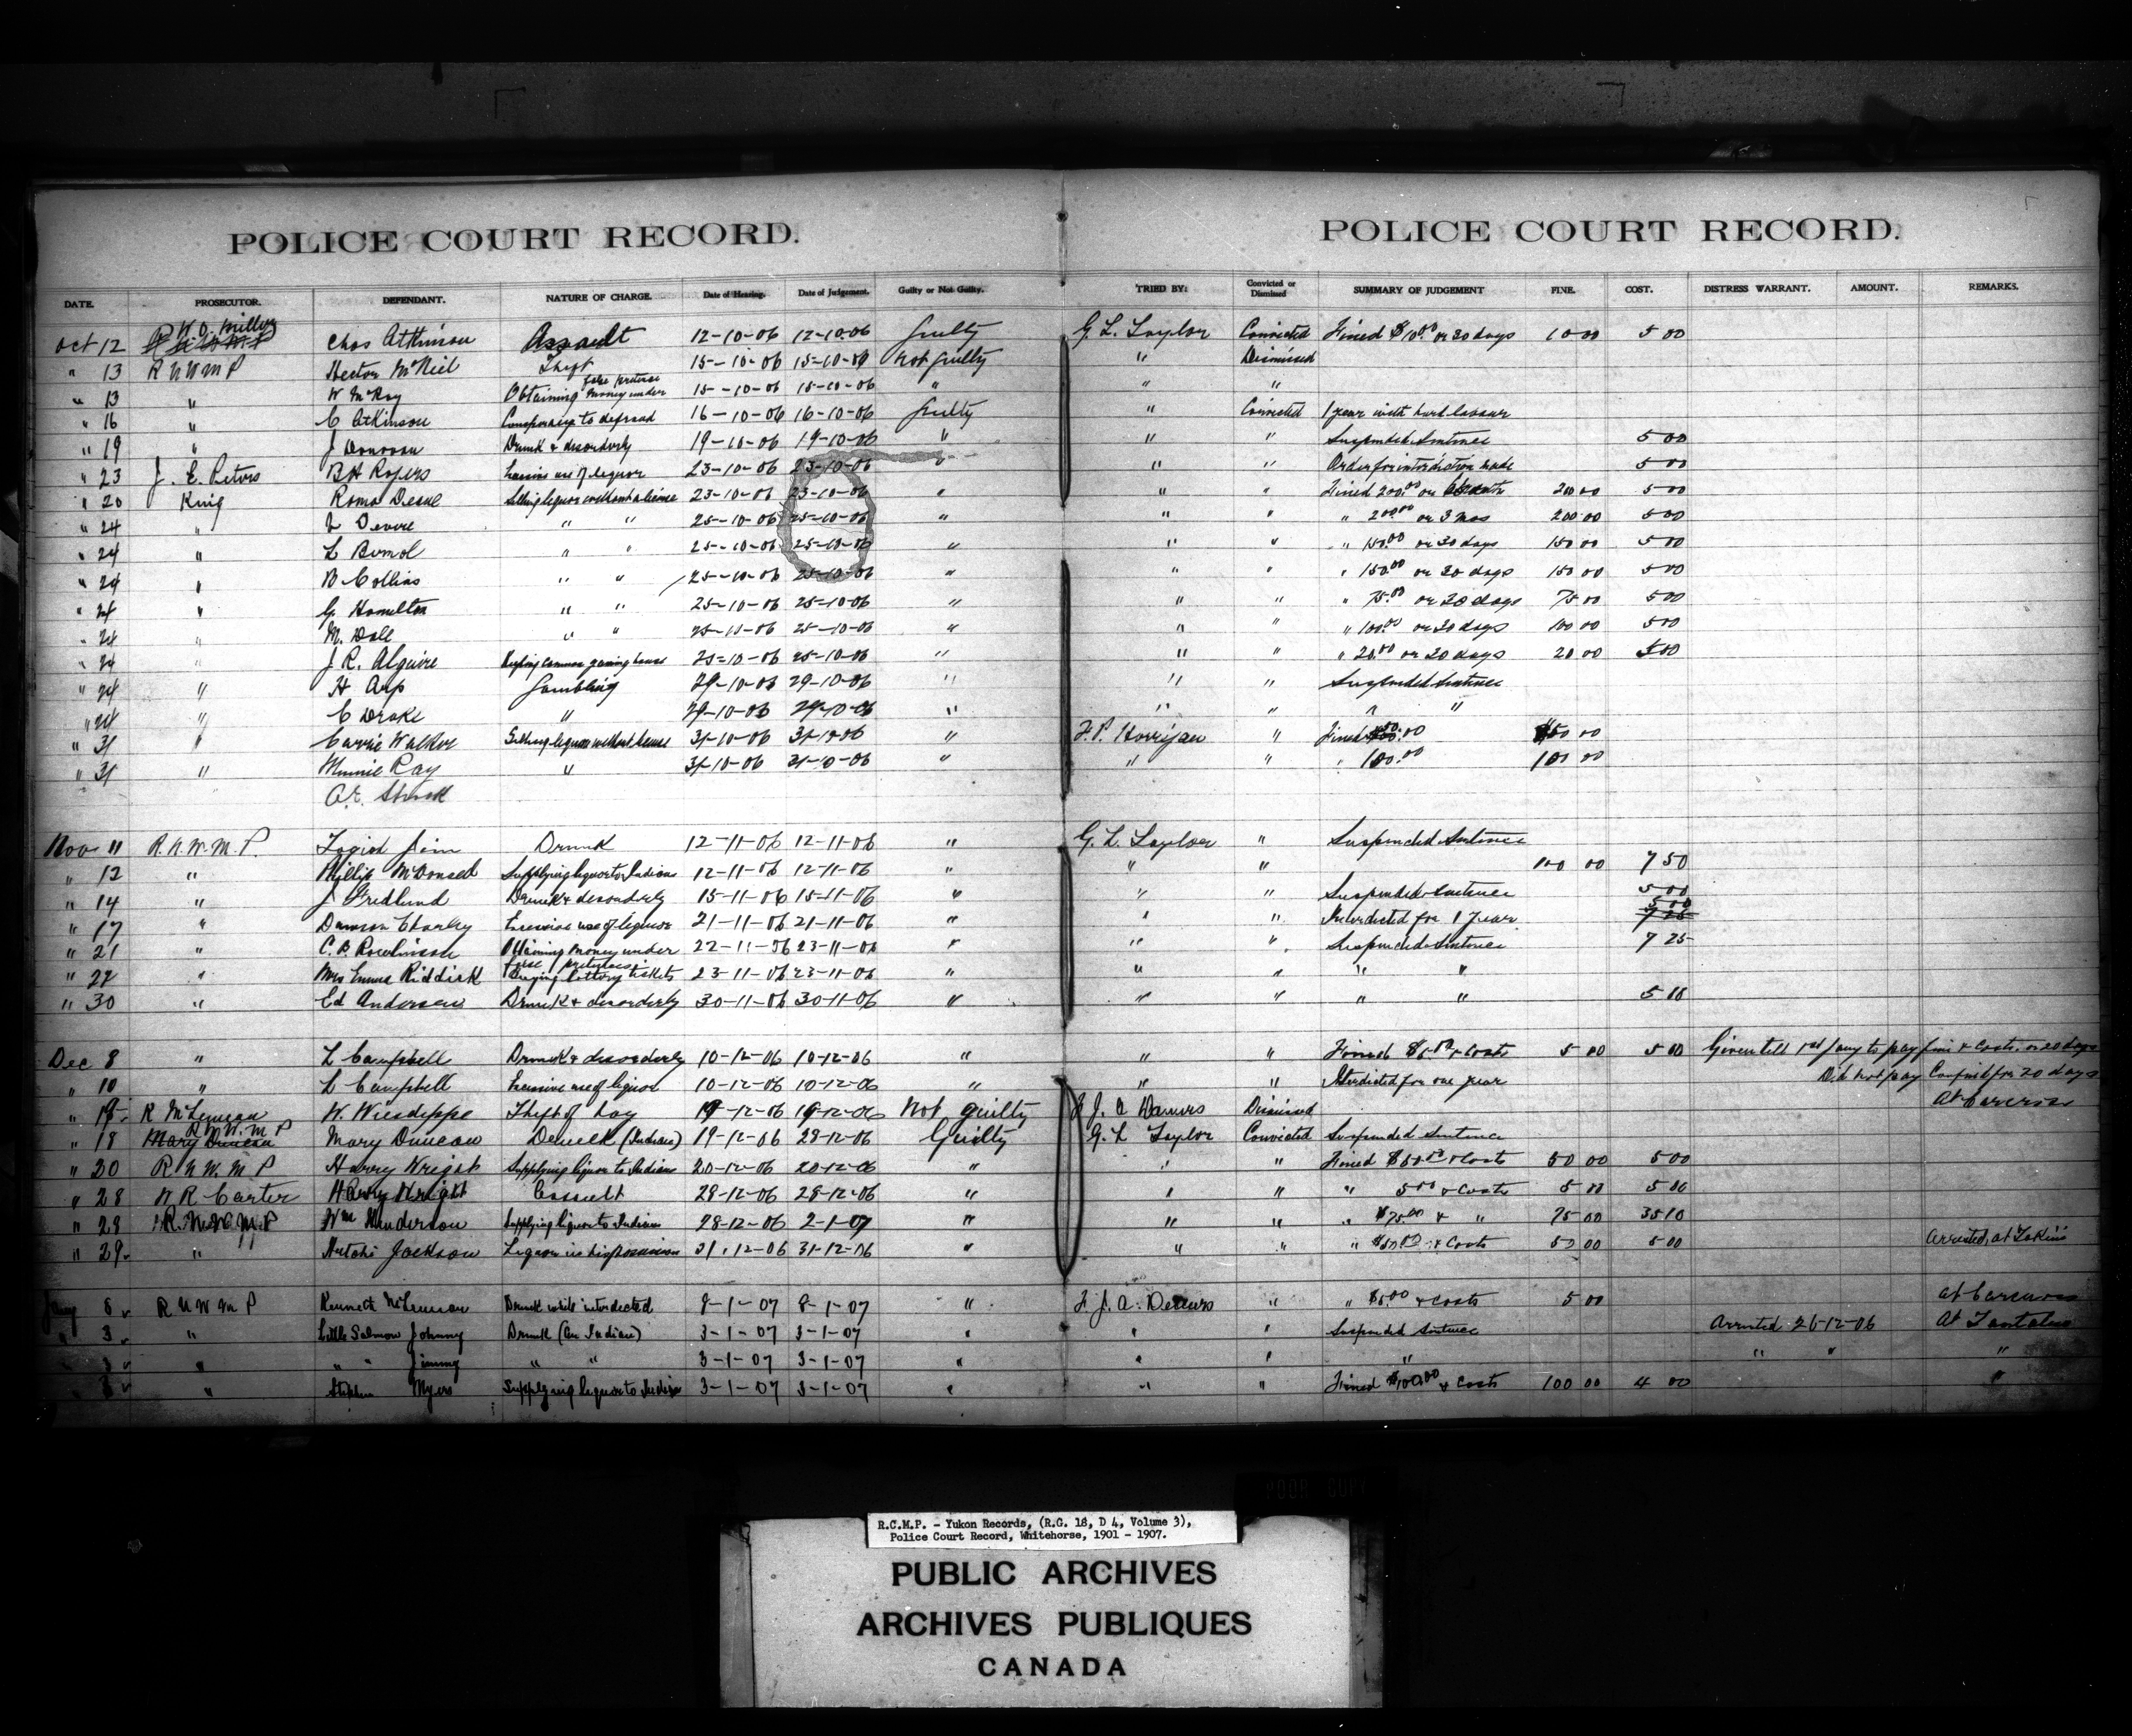 POLICE COURT RECORD. POLICE COURT RECORD.
DATE. PROSECUTOR. DEFENDANT. NATURE OF CHARGE. Date of Hearing. Date of Judgement. Guilty or Not Guilty. TRIED BY: Convicted or Dismissed SUMMARY OF JUDGEMENT FINE. COST. DISTRESS WARRANT. AMOUNT. REMARKS.
Oct 12 Chas Atkinson Assault 12-10-06 12-10-06 Guilty G. L. Taylor Convicted Fined $10.00 or 30 days 10 00 5 00
" 13 R N W M P Hector McNeil Theft 15-10-06 15-10-06 Not Guilty " Dismissed
" 13 " W McKay Obtaining money under false pretense 15-10-06 15-10-06 " " "
" 16 " C Atkinson Conspiracy to defraud 16-10-06 16-10-06 Guilty " Convicted 1 year with hard labour
" 19 " J Donovan Drunk & disorderly 19-10-06 19-10-06 " " " Suspended Sentence 5 00
" 23 J. E. Peters B H Rogers Excessive use of liquor 23-10-06 23-10-06 " " " Order for interdiction made 5 00
" 20 King Roma Selling liquor without a license 23-10-06 23-10-06 " " " Fined 200.00 or 200 00 5 00
" 24 " Devere " " 25-10-06 25-10-06 " " " " 200.00 or 3 mos 200 00 5 00
" 24 " L " " 25-10-06 25-10-06 " " " " 150.00 or 30 days 150 00 5 00
" 24 " B Collins " " 25-10-06 25-10-06 " " " " 150.00 or 30 days 150 00 5 00
" 24 " G. Hamilton " " 25-10-06 25-10-06 " " " " 75.00 or 30 days 75 00 5 00
" 24 " M. Dale " " 25-10-06 25-10-06 " " " " 100.00 or 30 days 100 00 5 00
" 24 " J R. Alguire Keeping common gaming house 25-10-06 25-10-06 " " " " 20.00 or 20 days 20 00 5 00
" 24 " H Arp Gambling 29-10-06 29-10-06 " " " Suspended Sentence
" 24 " C Drake " 29-10-06 29-10-06 " " " " "
" 31 " Carrie Walker Selling liquor without license 31-10-06 31-10-06 " F. P. Horrigan " Fined
" 31 " Minnie Ray " 31-10-06 31-10-06 " " " " 100.00 100 00
Nov 11 R. N. W. M. P. Jim Drunk 12-11-06 12-11-06 " G. L. Taylor " Suspended Sentence
" 12 " McDonald Supplying liquor to Indians 12-11-06 12-11-06 " " " 100 00 7 50
" 14 " J Fredlund Drunk & disorderly 15-11-06 15-11-06 " " " Suspended Sentence 5 00
" 17 " Dawson Charley Excessive use of liquor 21-11-06 21-11-06 " " " Interdicted for 1 year 5 00
" 21 " C. B. Rowlinson Obtaining money under false pretenses 22-11-06 23-11-06 " " " Suspended Sentence 7 25
" 22 " Mrs Emma Riddick Buying lottery tickets 23-11-06 23-11-06 " " " " "
" 30 " Ed Anderson Drunk & disorderly 30-11-06 30-11-06 " " " " " 5 00
Dec 8 " L Campbell Drunk & disorderly 10-12-06 10-12-06 " " " Fined $5.00 & Costs 5 00 5 00 Given till 1st Jany to pay fine & costs. or 20 days
" 10 " L Campbell Excessive use of liquor 10-12-06 10-12-06 " " " Interdicted for one year Did not pay for 20 days
" R McLennan W. Theft of 19-12-06 19-12-06 Not guilty F J. A Dismissed At Carcross
" 18 Mary Duncan R N W. M P Mary Duncan Drunk (Indian) 19-12-06 29-12-06 Guilty G. L Taylor Convicted Suspended Sentence
" 20 R N W. M P Harry Wright Supplying liquor to Indians 20-12-06 20-12-06 " " " Fined $50.00 & Costs 50 00 5 00
" 28 R Carter Harry Wright Assault 29-12-06 29-12-06 " " " " 5.00 & Costs 5 00 5 00
" 28 R. N. W. M. P Wm Henderson Supplying liquor to Indians 28-12-06 2-1-07 " " " " $75.00 & " 75 00 35 10
" 29 " Hutchi Jackson Liquor in his possession 31-12-06 31-12-06 " " " " $50.00 & Costs 50 00 5 00 Arrested at
Jany R N W M P Kenneth McLennan Drunk while interdicted 8-1-07 8-1-07 " F. J. A. " " $5.00 & costs 5 00 At Carcross
" 3 " Little Salmon Johnny Drunk (An Indian) 3-1-07 3-1-07 " " " Suspended Sentence Arrested 26-12-06 At Tantalus
" 3 " " " Jimmy " " 3-1-07 3-1-07 " " " " " " "
" 3 " Stephen Myers Supplying liquor to Indian 3-1-07 3-1-07 " " " Fined $100.00 & Costs 100 00 4 00 "
R.C.M.P. - Yukon Records, (R.G. 18, D 4, Volume 3),
Police Court Record, Whitehorse, 1901 - 1907.
PUBLIC ARCHIVES
ARCHIVES PUBLIQUES
CANADA